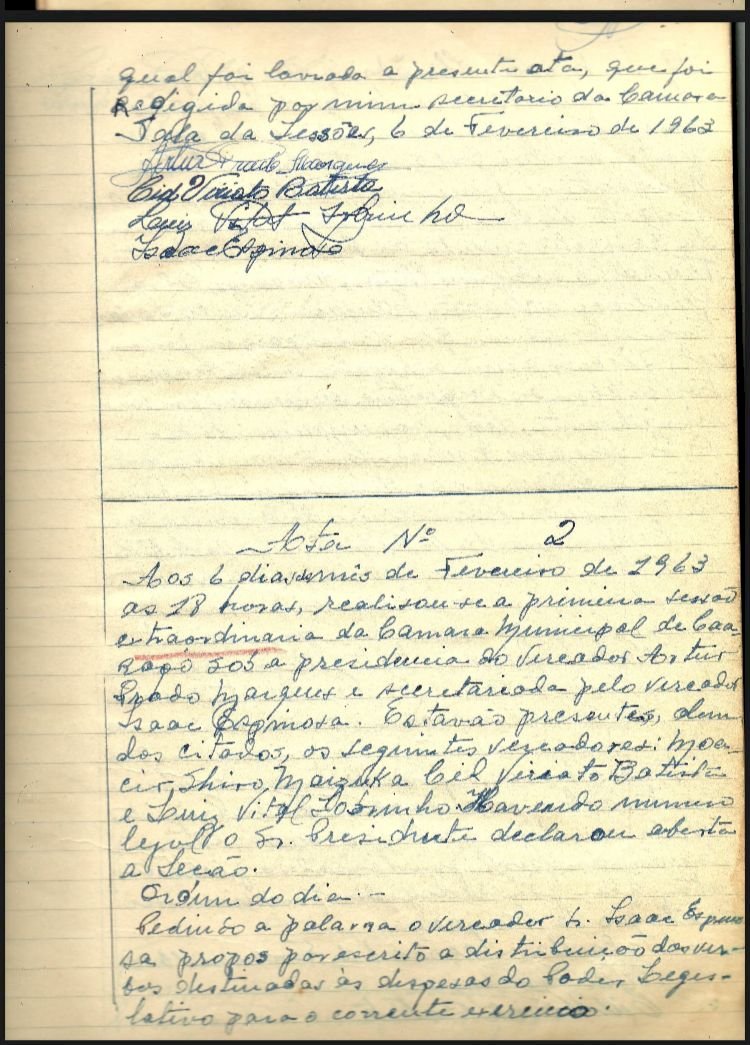 qual foi lavrada a presente ata, que foi
Redigida por mim secretario da Camara
Sala da Sessões, 6 de Fevereiro de 1963
Artur Prado Marques
Cid Viriato Batista
Luiz Vital Sobrinho
Isaac Espinosa
Ata Nº 2
Aos 6 dias do mês de Fevereiro de 1963
as 18 horas, realisou-se a primeira sessão
extraordinaria da Camara Municipal de Caa-
rapó sob a presidencia do vereador Artur
Prado Marques e secretariada pelo vereador
Isaac Espinosa. Estavão presentes, alem
dos citados, os seguintes vereadores: Moa-
cir, Shiro, Maizuka Cid Viriato Batista
e Luiz Vital Sobrinho Havendo numero
legal o Sr. Presidente declarou aberta
a Seção.
Ordem do dia.-
Pedindo a palavra o vereador Sr. Isaac Espino
sa propos por escrito a distribuição das ver-
bas destinadas às despesas do Poder Legis-
lativo para o corrente exercicio.